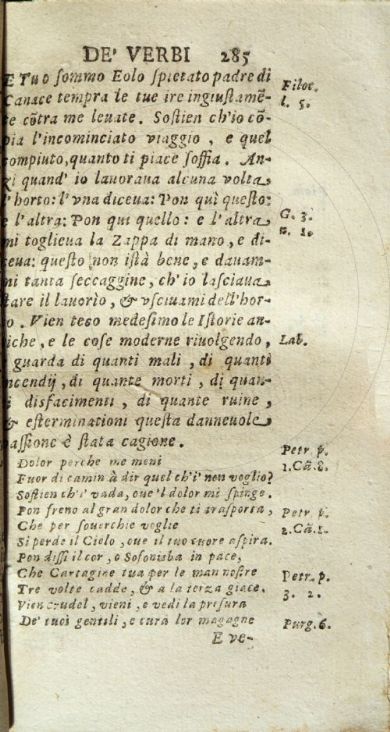 DE' VERBI 285
E Tu o sommo Eolo spietato padre di
Canace tempra le tue ire ingiustamē-
te cōtra me leuate. Sostien ch'io cō-
pia l'incominciato viaggio, e quel
compiuto, quanto ti piace soffia. An-
zi quand' io lauoraua alcuna volta
l'horto: l'vna diceua: Pon quì questo:
e l'altra: Pon qui quello: e l'altra
mi toglieua la Zappa di mano, e di-
ceua: questo non istà bene, e dauam-
mi tanta seccaggine, ch'io lasciaua
stare il lauorìo, & vsciuami dell'hor-
to. Vien teco medesimo le Istorie an-
tiche, e le cose moderne riuolgendo,
e guarda di quanti mali, di quanti
incendij, di quante morti, di quan-
ti disfacimenti, di quante ruine,
& esterminationi questa danneuole
passione è stata cagione.
Dolor perche me meni
Fuor di camin à dir quel ch'i' non voglio?
Sostien ch'i' vada, oue 'l dolor mi spinge.
Pon freno al gran dolor che ti trasporta,
Che per souerchie voglie
Si perde il Cielo, oue il tuo cuore aspira.
Pon dissi il cor, o Sofonisba in pace,
Che Cartagine tua per le man nostre
Tre volte cadde, & a la terza giace.
Vien crudel, vieni, e vedi la presura
De' tuoi gentili, e cura lor magagne
E ve-
Filoc.
l. 5.
G. 3.
n. 1.
Lab.
Petr. p.
1. Cā. 8.
Petr. p.
2. Cā. 1.
Petr. p.
3. 2.
Purg. 6.